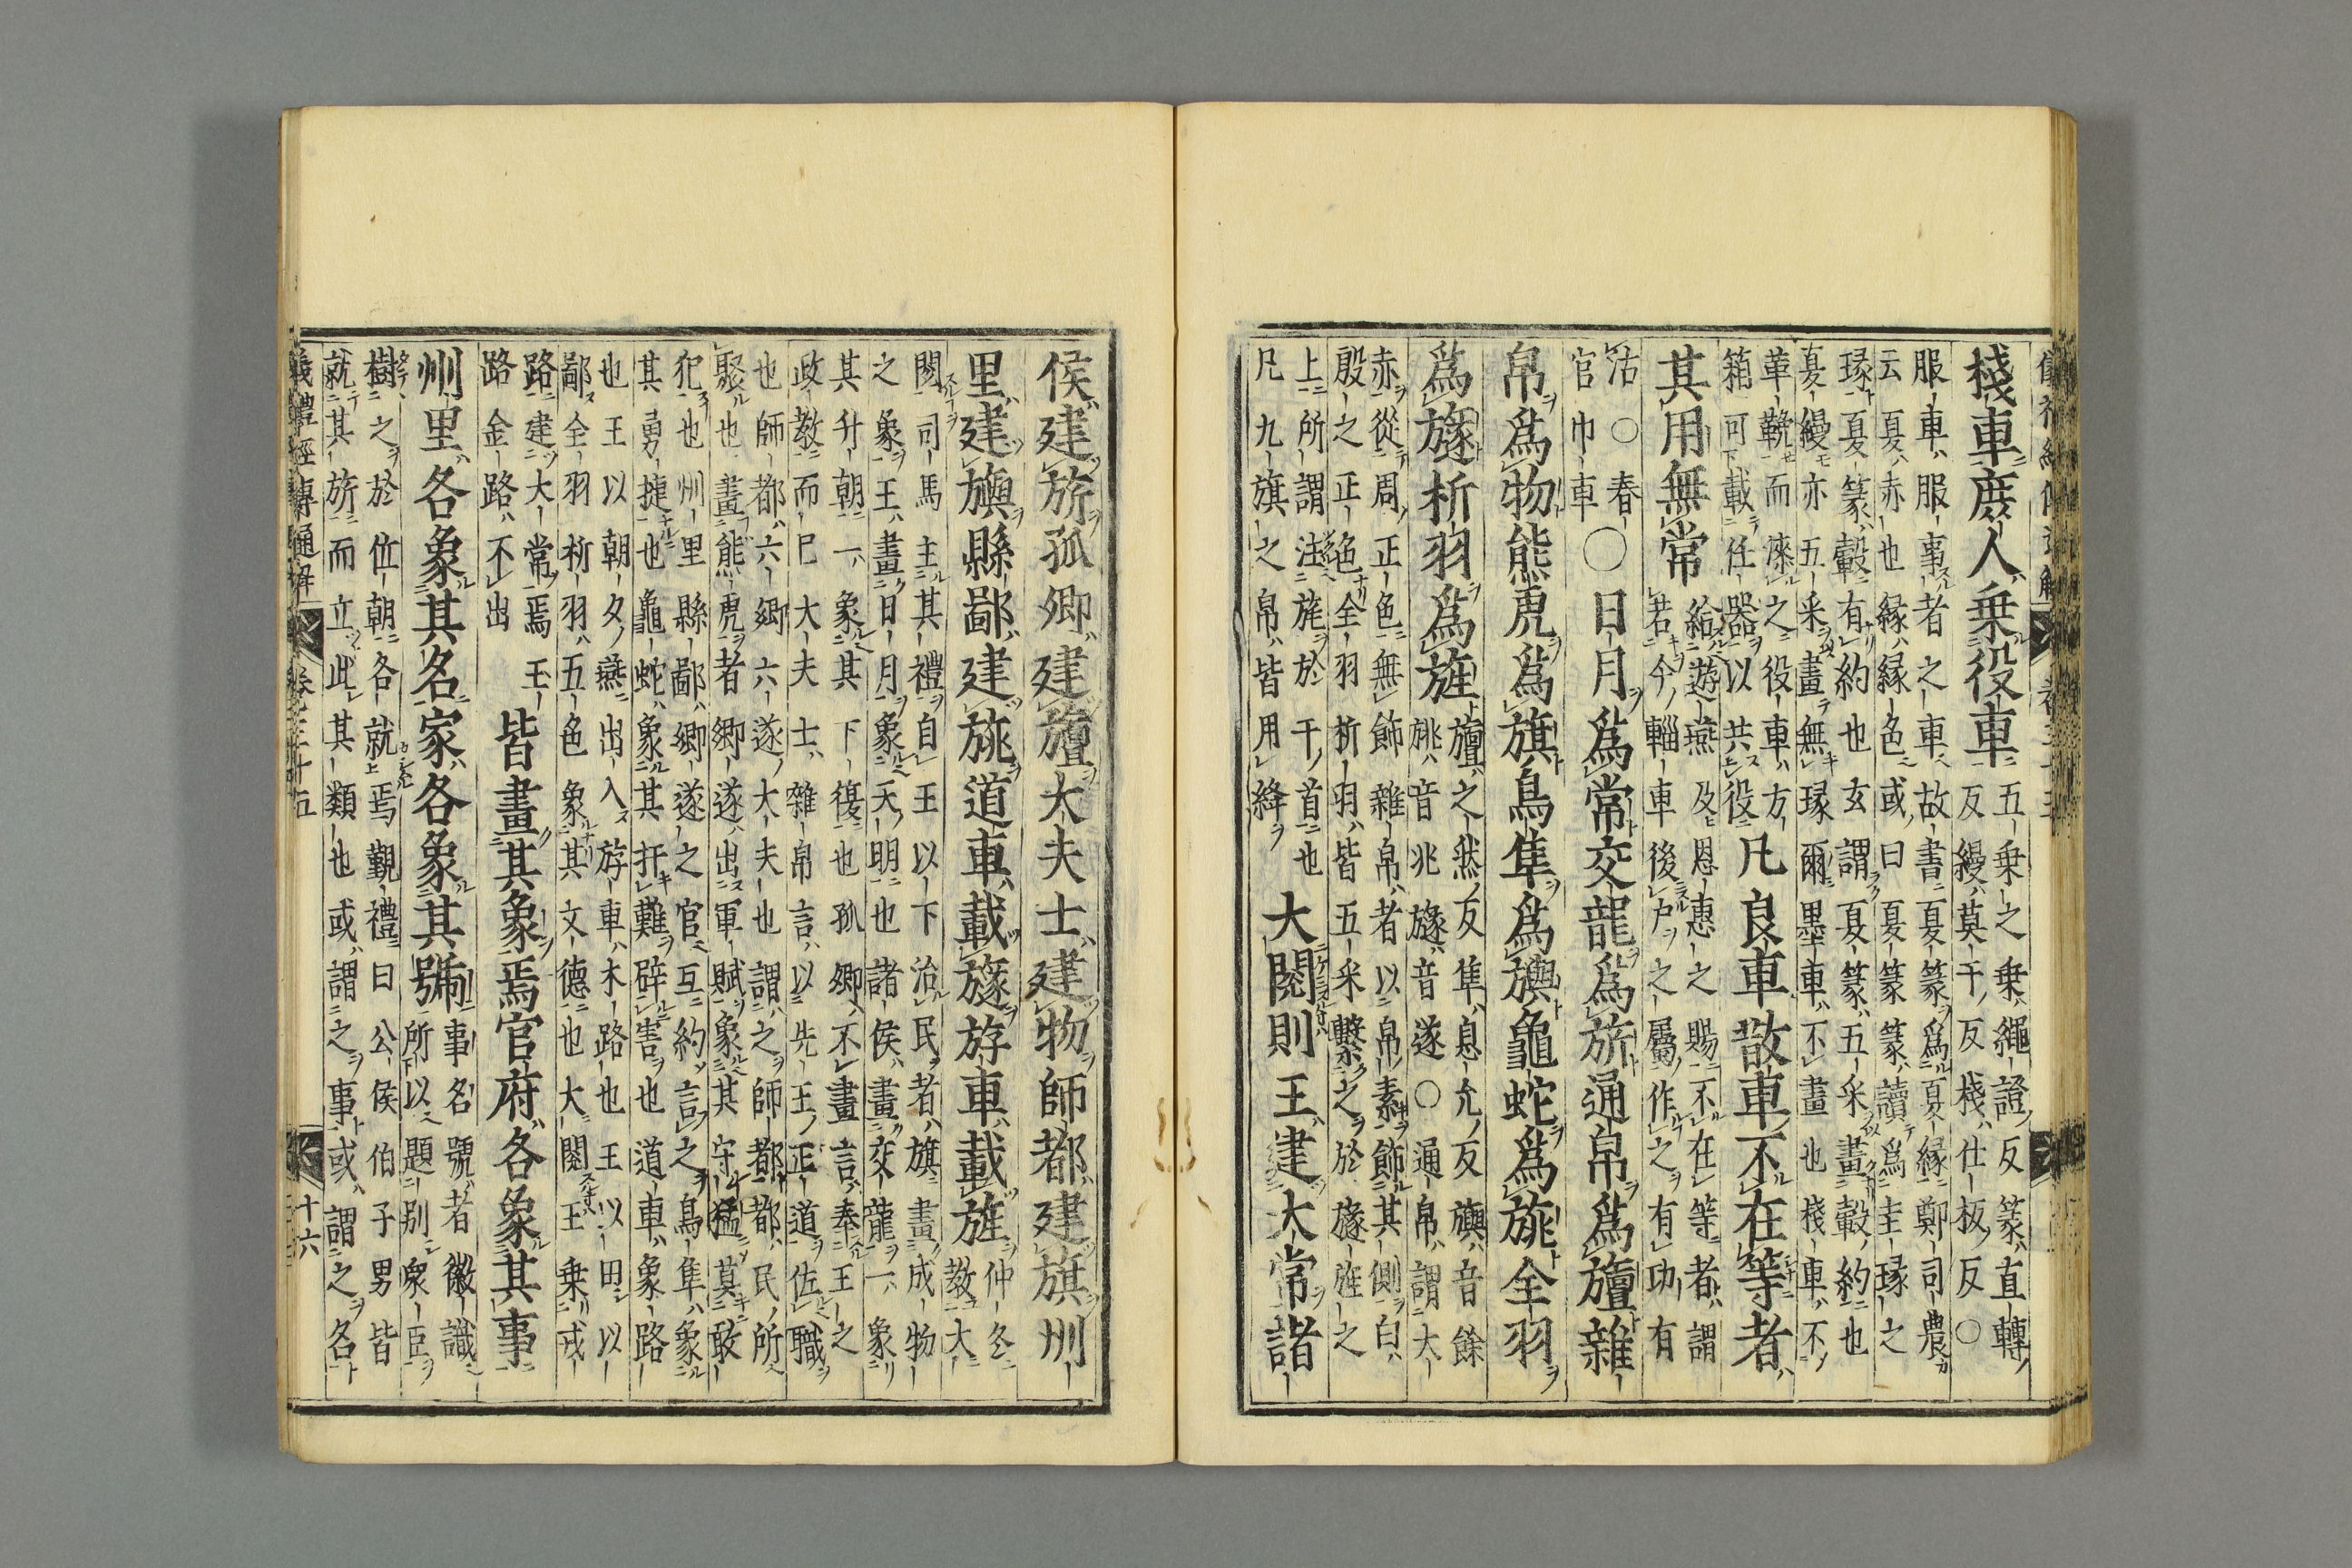 棧車庶人乗役車
五乗之乗繩證反篆直轉
反縵莫干反棧仕板反○
服車服事者之車故書夏篆爲夏縁鄭司農
云夏赤也縁縁色或曰夏篆篆讀爲圭瑑之
瑑夏篆轂有約也玄謂夏篆五采畫轂約也
夏縵亦五采畫無瑑爾墨車不畫也棧車不
革鞔而漆之役車方
箱可載任器以共役
凡良車散車不在等者
其用無常
給遊燕及恩惠之賜不在等者謂
若今輜車後戸之屬作之有功有
沽○春
官巾車
○日月爲常交龍爲旂通帛爲旜雜
帛爲物熊虎爲旗鳥隼爲旟龜蛇爲旐全羽
爲旞析羽爲旌
旜之然反隼息允反旟音餘
旐音兆旞音遂○通帛謂大
赤從周正色無飾雜帛者以帛素飾其側白
殷之正色全羽析羽皆五采繫之於旞旌之
上所謂注旄於干首也
凡九旗之帛皆用絳
大閱則王建大常諸
侯建旂孤卿建旜大夫士建物師都建旗州
里建旟縣鄙建旐道車載旞斿車載旌
仲冬
教大
閱司馬主其禮自王以下治民者旗畫成物
之象王畫日月象天明也諸侯畫交龍一象
其升朝一象其下復也孤卿不畫言奉王之
政教而巳大夫士雜帛言以先王正道佐職
也師都六卿六遂大夫也謂之師都都民所
聚也畫熊虎者卿遂出軍賦象其守猛莫敢
犯也州里縣鄙卿遂之官互約言之鳥隼象
其勇捷也龜蛇象其扞難辟害也道車象路
也王以朝夕燕出入斿車木路也王以田以
鄙全羽析羽五色象其文德也大閱王乗戎
路建大常焉王
路金路不出
皆畫其象焉官府各象其事
州里各象其名家各象其號
事名號者徽識
所以題別衆臣
樹之於位朝各就焉覲禮曰公侯伯子男皆
就其旂而立此其類也或謂之事或謂之名
儀禮經傳通解　卷三十五　十六